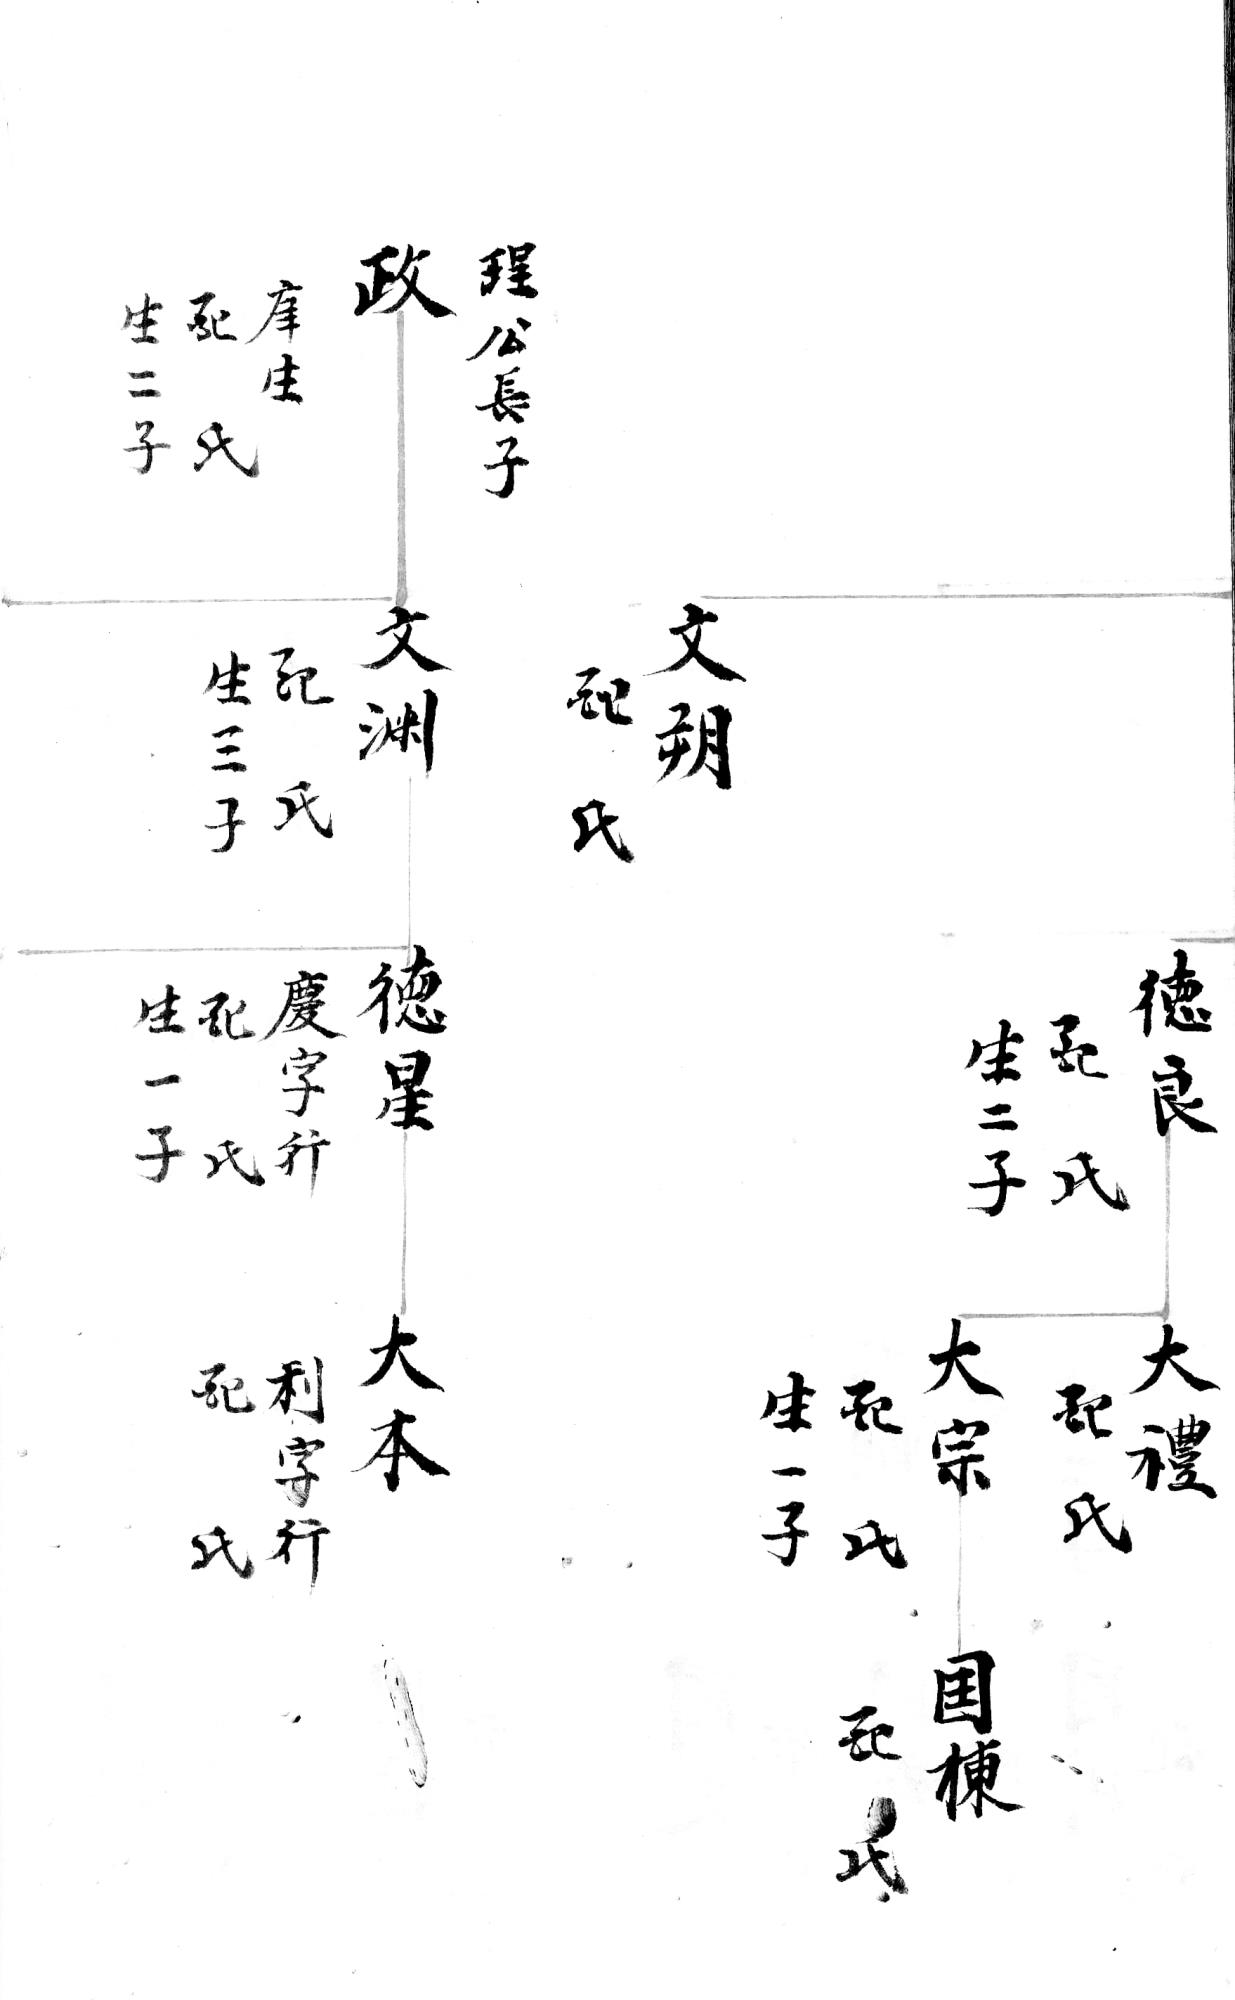 珵公長子
政
庠生
配 氏
生二子
文朔
配 氏
文渊
配 氏
生三子
德良
配 氏
生二子
德星
慶字行
配 氏
生一子
大禮
配 氏
大宗
配 氏
生一子
大本
利字行
配 氏
国棟
配 氏